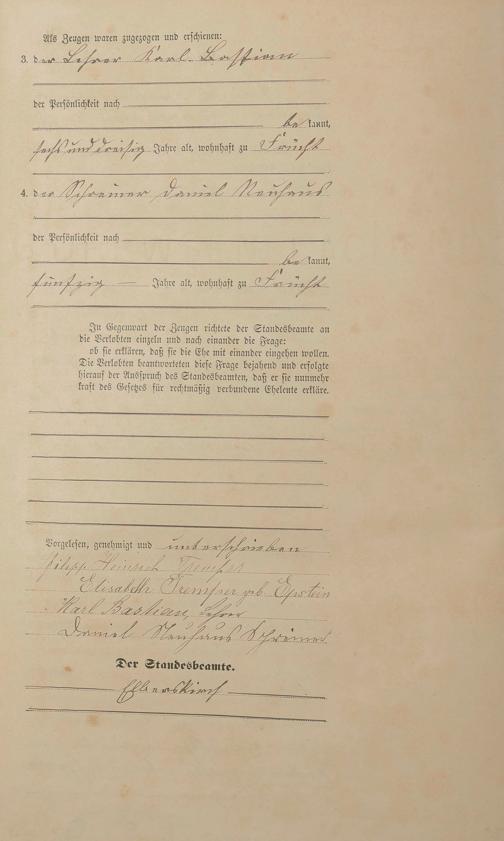 Als Zeugen waren zugezogen und erschienen:
3. der Lehrer Karl Bastian
der Persönlichkeit nach
be kannt,
sechs und dreisig Jahre alt, wohnhaft zu Frücht
4. der Schreiner Daniel Neuhaus
der Persönlichkeit nach
be kannt,
fünfzig — Jahre alt, wohnhaft zu Frücht
In Gegenwart der Zeugen richtete der Standesbeamte an
die Verlobten einzeln und nach einander die Frage:
ob sie erklären, daß sie die Ehe mit einander eingehen wollen.
Die Verlobten beantworteten diese Frage bejahend und erfolgte
hierauf der Ausspruch des Standesbeamten, daß er sie nunmehr
kraft des Gesetzes für rechtmäßig verbundene Eheleute erkläre.
Vorgelesen, genehmigt und unterschrieben
Heinrich
Elisabeth geb. Epstein
Karl Bastian, Lehrer
Daniel Neuhaus Schreiner
Der Standesbeamte.